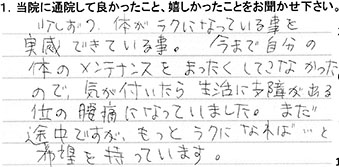 1. 当院に通院して良かったこと、嬉しかったことをお聞かせ下さい。
少しずつ、体がラクになっている事を
実感できている事。 今まで自分の
体のメンテナンスをまったくしてきなかった
ので、気が付いたら生活に支障がある
位の腰痛になっていました。まだ
途中ですが、もっとラクになれば…と
希望を持っています。